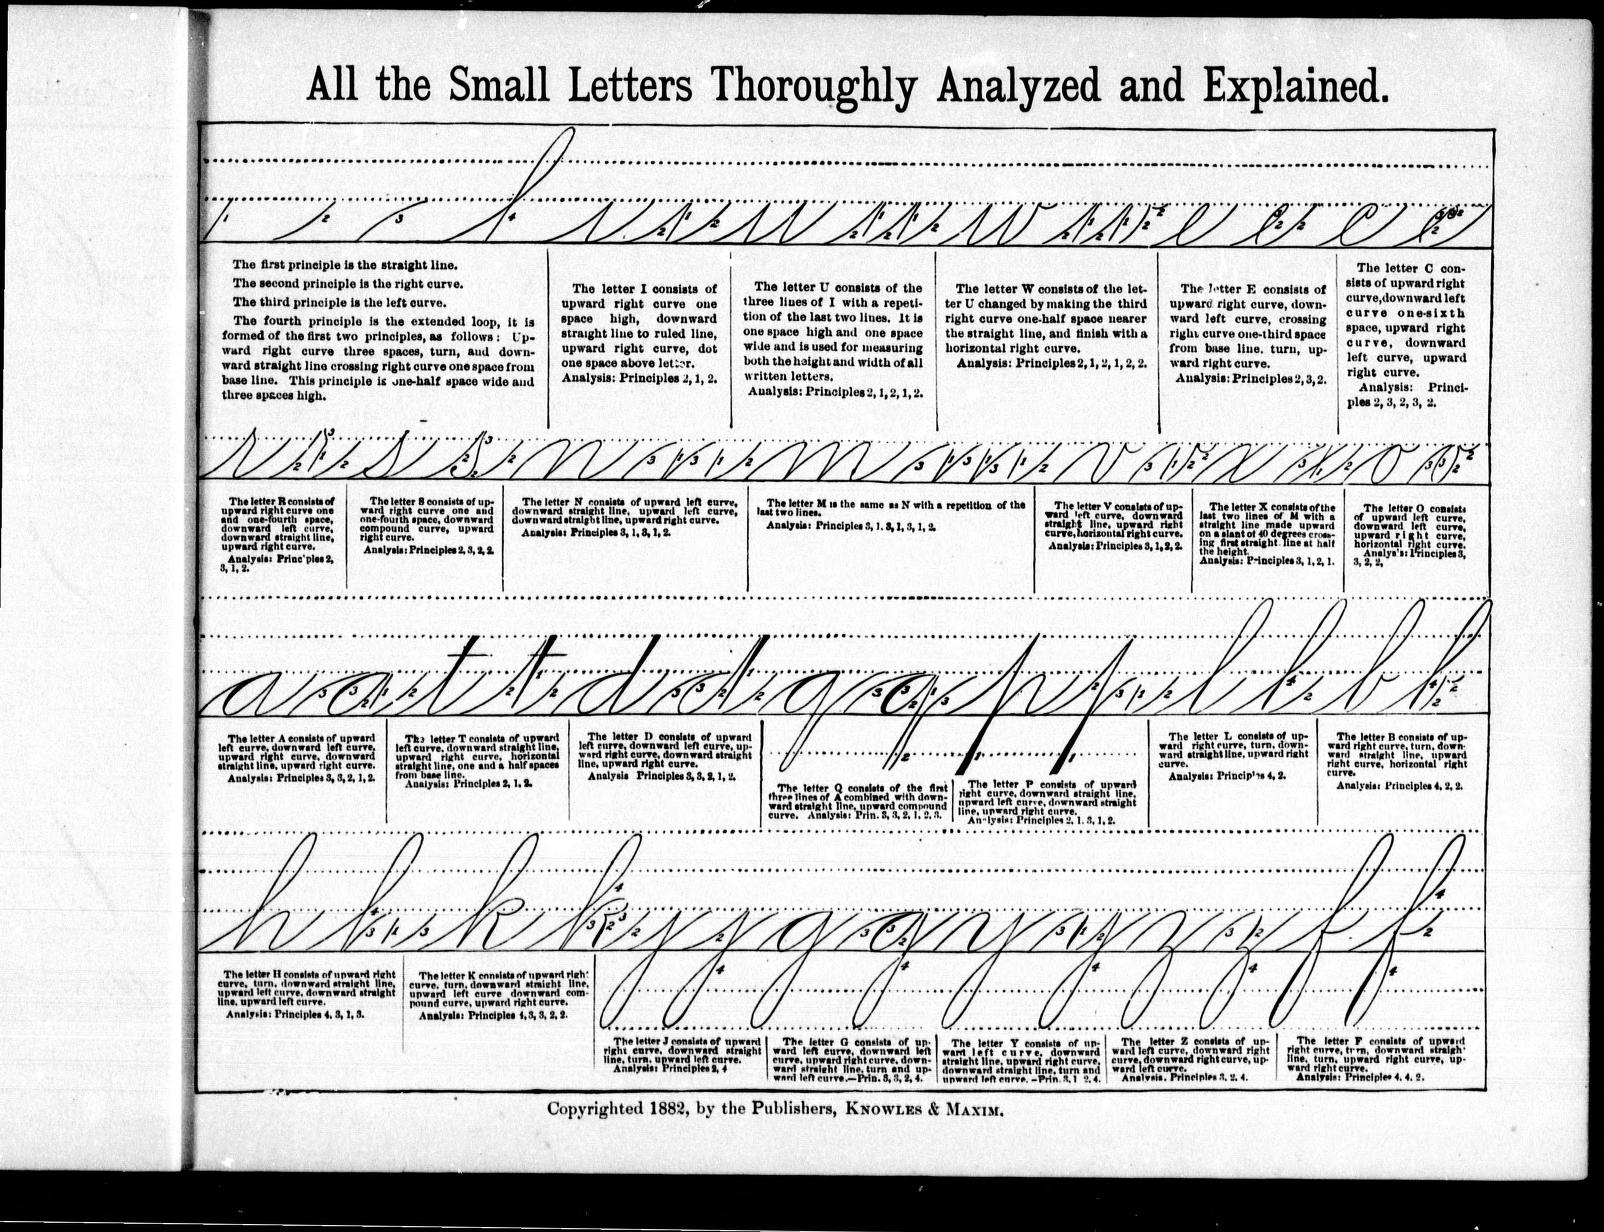 All the Small Letters Thoroughly Analyzed and Explained.
The first principle is the straight line.
The second principle is the right curve.
The third principle is the left curve.
The fourth principle is the extended loop, it is
formed of the first two principles, as follows: Up-
ward right curve three spaces, turn, and down-
ward straight line crossing right curve one space from
base line. This principle is one-half space wide and
three spaces high.
The letter I consists of
upward right curve one
space high, downward
straight line to ruled line,
upward right curve, dot
one space above letter.
Analysis: Principles 2, 1, 2.
The letter U consists of the
three lines of I with a repeti-
tion of the last two lines. It is
one space high and one space
wide and is used for measuring
both the height and width of all
written letters.
Analysis: Principles 2, 1, 2, 1, 2.
The letter W consists of the let-
ter U changed by making the third
right curve one-half space nearer
the straight line, and finish with a
horizontal right curve.
Analysis: Principles 2, 1, 2, 1, 2, 2.
The letter E consists of
upward right curve, down-
ward left curve, crossing
right curve one-third space
from base line. turn, up-
ward right curve.
Analysis: Principles 2, 3, 2.
The letter C con-
sists of upward right
curve, downward left
curve one-sixth
space, upward right
curve, downward
left curve, upward
right curve.
Analysis: Princi-
ples 2, 3, 2, 3, 2.
The letter R consists of
upward right curve one
and one-fourth space,
downward left curve,
downward straight line,
upward right curve.
Analysis: Principles 2,
3, 1, 2.
The letter S consists of up-
ward right curve one and
one-fourth space, downward
compound curve, upward
right curve.
Analysis: Principles 2, 3, 2, 2.
The letter N consists of upward left curve,
downward straight line, upward left curve,
downward straight line, upward right curve.
Analysis: Principles 3, 1, 3, 1, 2.
The letter M is the same as N with a repetition of the
last two lines.
Analysis: Principles 3, 1. 3, 1, 3, 1, 2.
The letter V consists of up-
ward left curve, downward
straight line, upward right
curve, horizontal right curve.
Analysis: Principles 3, 1, 2, 2.
The letter X consists of the
last two lines of M with a
straight line made upward
on a slant of 40 degrees cross-
ing first straight line at half
the height.
Analysis: Principles 3, 1, 2, 1.
The letter O consists
of upward left curve,
downward left curve,
upward right curve,
horizontal right curve.
Analysis: Principles 3,
3, 2, 2,
The letter A consists of upward
left curve, downward left curve,
upward right curve, downward
straight line, upward right curve.
Analysis: Principles 3, 3, 2, 1, 2.
The letter T consists of upward
left curve, downward straight line,
upward right curve, horizontal
straight line, one and a half spaces
from base line.
Analysis: Principles 2, 1, 2.
The letter D consists of upward
left curve, downward left curve, up-
ward right curve, downward straight
line, upward right curve.
Analysis Principles 3, 3, 2, 1, 2.
The letter Q consists of the first
three lines of A combined with down-
ward straight line, upward compound
curve. Analysis: Prin. 3, 3, 2, 1, 2, 3.
The letter P consists of upward
right curve, downward straight line,
upward left curve, downward straight
line, upward right curve.
Analysis: Principles 2, 1. 3, 1, 2.
The letter L consists of up-
ward right curve, turn, down-
ward straight line, upward right
curve.
Analysis: Principles 4, 2.
The letter B consists of up-
ward right curve, turn, down-
ward straight line, upward
right curve, horizontal right
curve.
Analysis: Principles 4, 2, 2.
The letter H consists of upward right
curve, turn, downward straight line,
upward left curve, downward straight
line, upward left curve.
Analysis: Principles 4, 3, 1, 3.
The letter K consists of upward right
curve, turn, downward straight line,
upward left curve downward com-
pound curve, upward right curve.
Analysis: Principles 4, 3, 3, 2, 2.
The letter J consists of upward
right curve, downward straight
line, turn, upward left curve.
Analysis: Principles 2, 4
The letter G consists of up-
ward left curve, downward left
curve, upward right curve, down-
ward straight line, turn and up-
ward left curve.—Prin. 3, 3, 2, 4.
The letter Y consists of up-
ward left curve, downward
straight line, upward right curve,
downward straight line, turn and
upward left curve. –Prin. 3, 1 2, 4.
The letter Z consists of up-
ward left curve, downward
curve, downward right curve, up-
ward left curve.
Analysis. Principles 3, 2, 4.
The letter F consists of upward
right curve, turn, downward straight
line, turn, upward right curve, up-
ward right curve.
Analysis: Principles 4, 4, 2.
Copyrighted 1882, by the Publishers, KNOWLES & MAXIM.